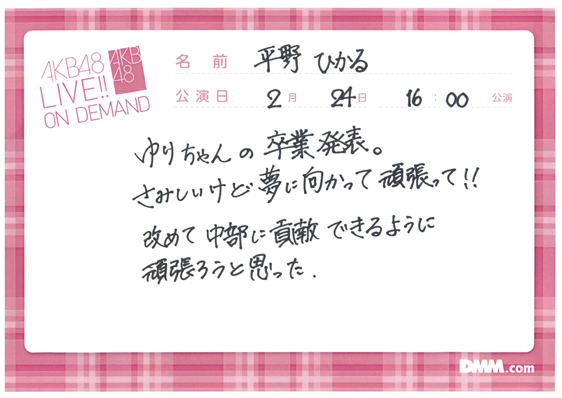 AKB48
LIVE!!
ON DEMAND
AKB
48
名前 平野 ひかる
公演日 2月 24日 16:00 公演
ゆりちゃんの卒業発表。
さみしいけど夢に向かって頑張って!!
改めて中部に貢献できるように
頑張ろうと思った.
DMM.com